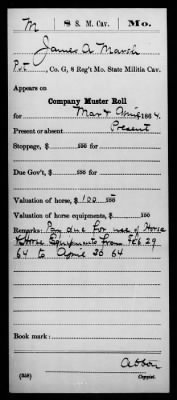 M 8 S. M. Cav. Mo.
James A. Marsh
Pvt, Co. G, 8 Reg't Mo. State Militia Cav.
Appears on
Company Muster Roll
for Mar & April, 1864.
Present or absent Present
Stoppage, $ 100 for
Due Gov't, $ 100 for
Valuation of horse, $ 100 100
Valuation of horse equipments, $ 100
Remarks: Pay due for use of Horse
& Horse Equipments from Feb 29
64 to April 30 64
Book mark:
Abbott
(358) Copyist.